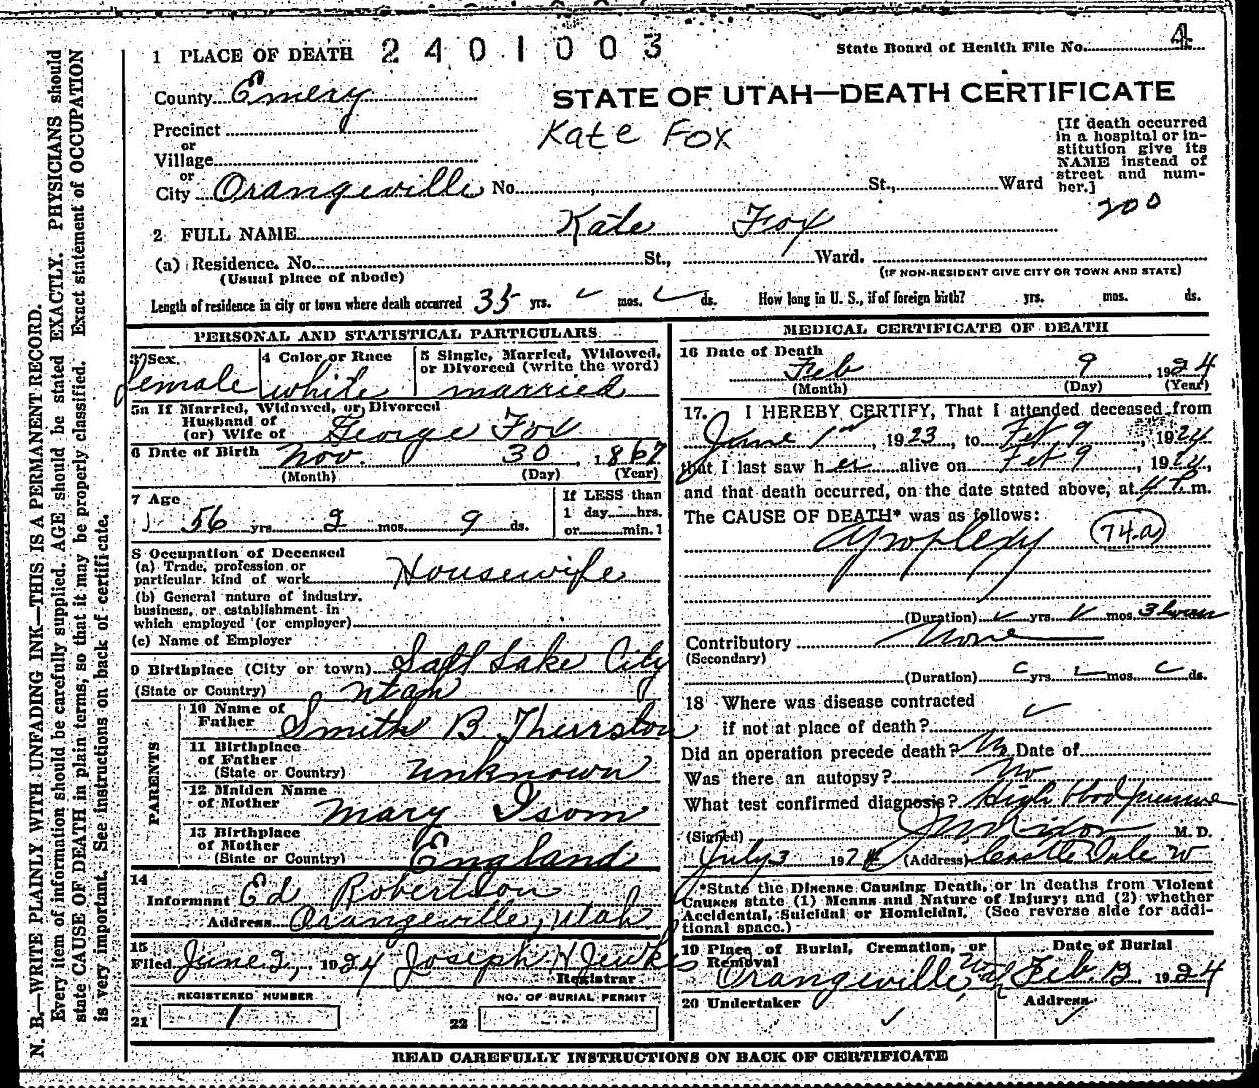 1 PLACE OF DEATH 2401003
State Board of Health File No. 4
County Emery
STATE OF UTAH—DEATH CERTIFICATE
Kate Fox
Precinct
or
Village
or
City Orangeville No. St., Ward
[If death occurred
in a hospital or in-
stitution give its
NAME instead of
street and num-
ber.]
200
2 FULL NAME Kate Fox
(a) Residence. No. St., Ward.
(Usual place of abode)
(IF NON-RESIDENT GIVE CITY OR TOWN AND STATE)
Length of residence in city or town where death occurred 35 yrs. mos. ds. How long in U. S., if of foreign birth? yrs. mos. ds.
PERSONAL AND STATISTICAL PARTICULARS
3 Sex. female
4 Color or Race white
5 Single, Married, Widowed,
or Divorced (write the word)
married
5a If Married, Widowed, or Divorced
Husband of
(or) Wife of George Fox
6 Date of Birth Nov. 30, 1867
(Month) (Day) (Year)
7 Age
56 yrs. 2 mos. 9 ds.
If LESS than
1 day hrs.
or min.
8 Occupation of Deceased
(a) Trade, profession or
particular kind of work Housewife
(b) General nature of industry,
business, or establishment in
which employed (or employer)
(c) Name of Employer
9 Birthplace (City or town) Salt Lake City
(State or Country) Utah
PARENTS
10 Name of
Father Smith B Thurston
11 Birthplace
of Father
(State or Country) unknown
12 Maiden Name
of Mother Mary Isom
13 Birthplace
of Mother
(State or Country) England
14
Informant Ed Robertson
Address Orangeville, Utah
15
Filed June 2, 1924 Joseph H Jewkes
Registrar
REGISTERED NUMBER
21 1
NO. OF BURIAL PERMIT
22
MEDICAL CERTIFICATE OF DEATH
16 Date of Death
Feb 9, 1924
(Month) (Day) (Year)
17. I HEREBY CERTIFY, That I attended deceased from
June 1st, 1923, to Feb 9, 1924
that I last saw her alive on Feb 9, 1924,
and that death occurred, on the date stated above, at 4 P.m.
The CAUSE OF DEATH* was as follows:
Apoplexy 74.a
(Duration) yrs. mos. 3 hours
Contributory None
(Secondary)
(Duration) yrs. mos. ds.
18 Where was disease contracted
if not at place of death?
Did an operation precede death? No Date of
Was there an autopsy? No
What test confirmed diagnosis? High Blood pressure
(Signed) M. D.
July 3 1924 (Address) Castle Dale
*State the Disease Causing Death, or in deaths from Violent
Causes state (1) Means and Nature of Injury; and (2) whether
Accidental, Suicidal or Homicidal. (See reverse side for addi-
tional space.)
19 Place of Burial, Cremation, or
Removal
Orangeville, Utah
Date of Burial
Feb. 12 1924
20 Undertaker
Address
READ CAREFULLY INSTRUCTIONS ON BACK OF CERTIFICATE
N. B.—WRITE PLAINLY WITH UNFADING INK—THIS IS A PERMANENT RECORD.
Every item of information should be carefully supplied. AGE should be stated EXACTLY. PHYSICIANS should
state CAUSE OF DEATH in plain terms, so that it may be properly classified. Exact statement of OCCUPATION
is very important. See instructions on back of certificate.